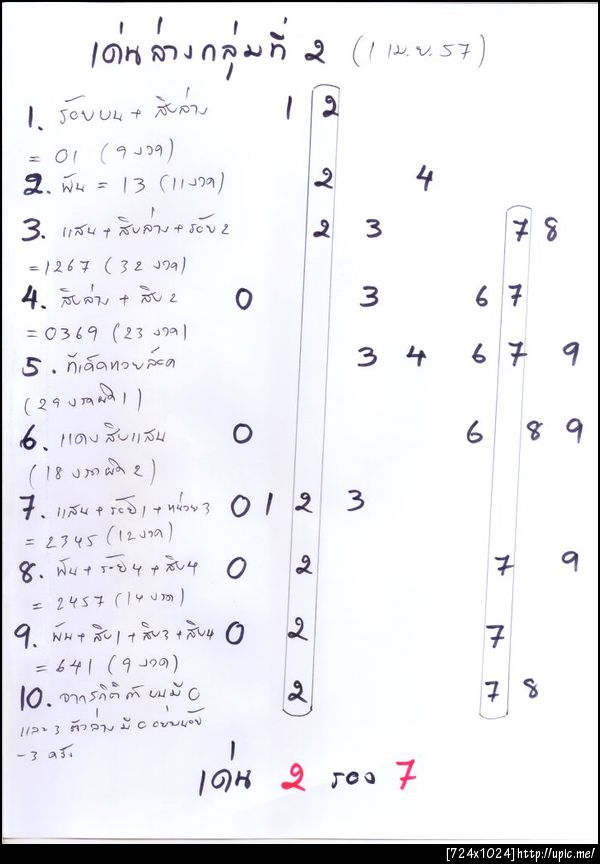 เด่นล่างกลุ่มที่ 2 (1 เม.ย. 57)
1. ร้อยบน + สิบล่าง 1 2
= 01 (9 งวด)
2. พัน = 13 (11 งวด) 2 4
3. แสน + สิบล่าง + ร้อย 2 2 3 7 8
=1267 (32 งวด)
4. สิบล่าง + สิบ 2 0 3 6 7
=0369 (23 งวด)
5. ทีเด็ดหวยล็อค 3 4 6 7 9
(29 งวดผิด 1)
6. แดงสิบแสน 0 6 8 9
(18 งวดผิด 2)
7. แสน + ร้อย 1 + หน่วย 3 0 1 2 3
= 2345 (12 งวด)
8. พัน + ร้อย 4 + สิบ 4 0 2 7 9
= 2457 (14 งวด)
9. พัน + สิบ 1 + สิบ 3 + สิบ 4 0 2 7
= 641 (9 งวด)
10. จากสถิติ บนมี 0 2 7 8
และ 3 ตัวล่าง มี 0 อย่างน้อย
- 3 ครั้ง
เด่น 2 รอง 7
[724x1024]http://upic.me/